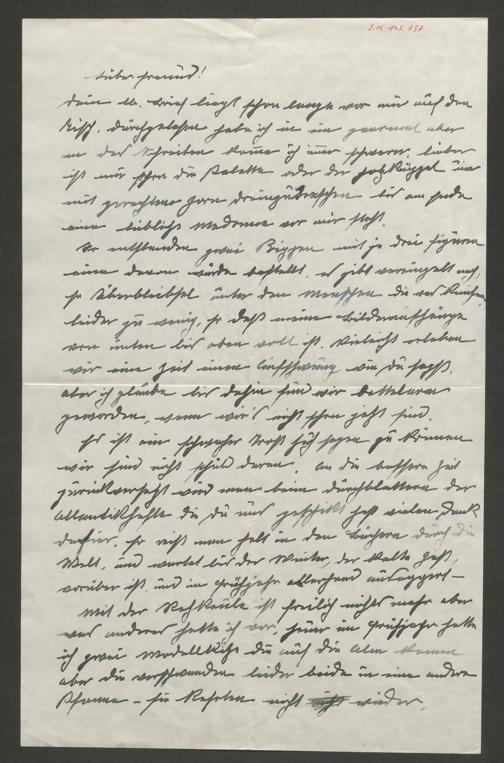 J.N. 145.757
Lieber Freund!
Dein lb. Brief liegt schon lange vor mir auf dem
Tisch. Durchgelesen habe ich in ein paarmal aber
an das Schreiben komme ich immer schwerer, lieber
ist mir schon die Palette oder der Holzknüppel um
mit gerechtem Zorn dreinzudreschen bis am Ende
eine liebliche Madonna vor mir steht.
So entstanden zwei Krippen mit je drei Figuren
eine davon wurde bestellt, es gibt vereinzelt noch
so Überbleibsel unter den Menschen die was
leider zu wenig, so daß meine
von unten bis oben voll ist. Vieleicht erleben
wir eine Zeit einen Aufschwung wie du sagst.
aber ich glaube bis dahin sind wir bettelarm
geworden, wenn wir's nicht schon jetzt sind.
Es ist ein schwacher Trost sich sagen zu können
wir sind nicht schuld daran. An die bessere Zeit
zurückversetzt wird man beim durchblättern der
die du mir geschickt hast vielen Dank
dafür, so reist man halt in den Büchern durch die
Welt, und wartet bis der Winter, der kalte Gast,
vorüber ist und im Frühjahr allerhand
Mit der Rehkeule ist freilich nichts mehr aber
was anderes hatte ich vor, heuer im Frühjahr hatte
ich zwei Modellkühe die auf die Alm kamen
aber die verschwanden leider beide in eine andere
Pfanne – sie kehrten nicht wieder.